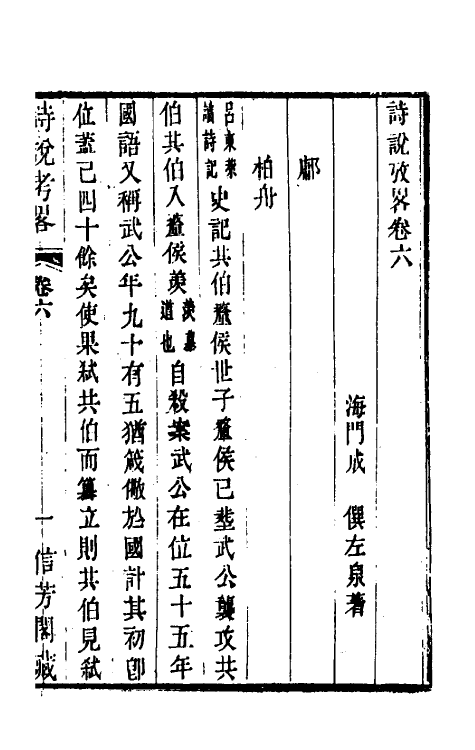 詩說攷畧卷六
海門成　僎左泉著
鄘
柏舟
呂東萊讀詩記史記共伯釐侯世子釐侯已塟武公襲攻共
伯共伯入釐侯羨羨墓道也自殺案武公在位五十五年
國語又稱武公年九十有五猶箴儆於國計其初卽
位蓋已四十餘矣使果弑共伯而篡立則共伯見弑
詩說考畧　卷六　一　信芳閣藏